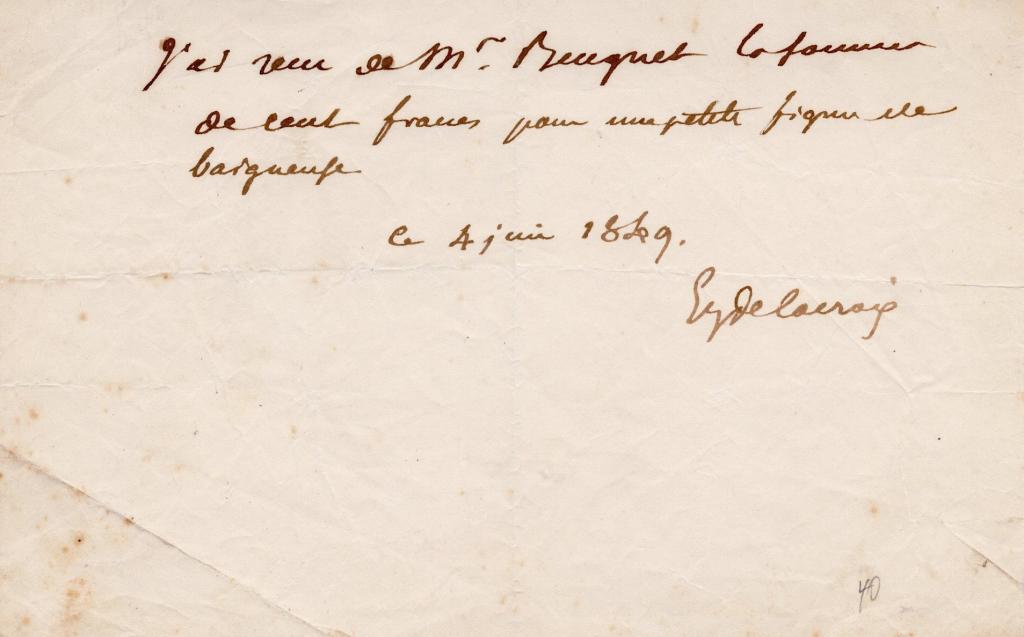 J'ai reçu de Mr. Beugnet la somme
de cent francs pour une petite figure de
baigneuse
ce 4 juin 1849.
Eug Delacroix
40